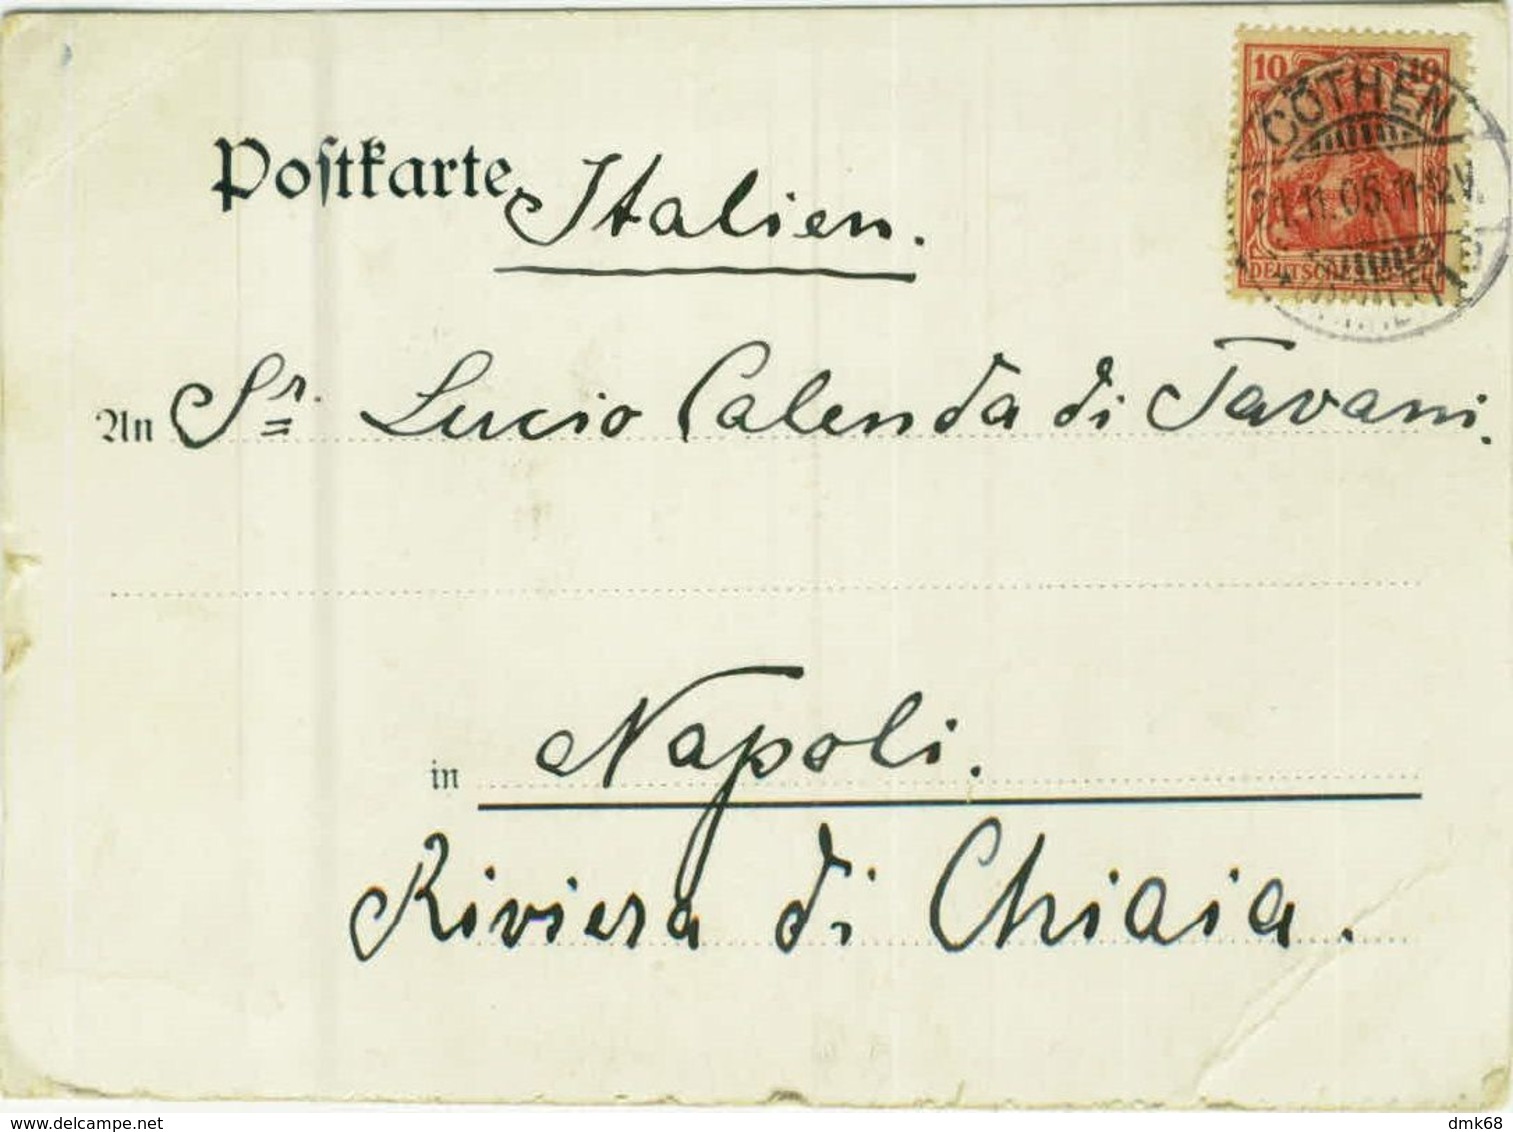 10 10
CÖTHEN
11.05.11-12V.
DEUTSCHES REICH
Postkarte Italien.
An Sr. Lucio Calenda di Tavani.
in Napoli.
Riviera di Chiaia.
www.delcampe.net
dmk68